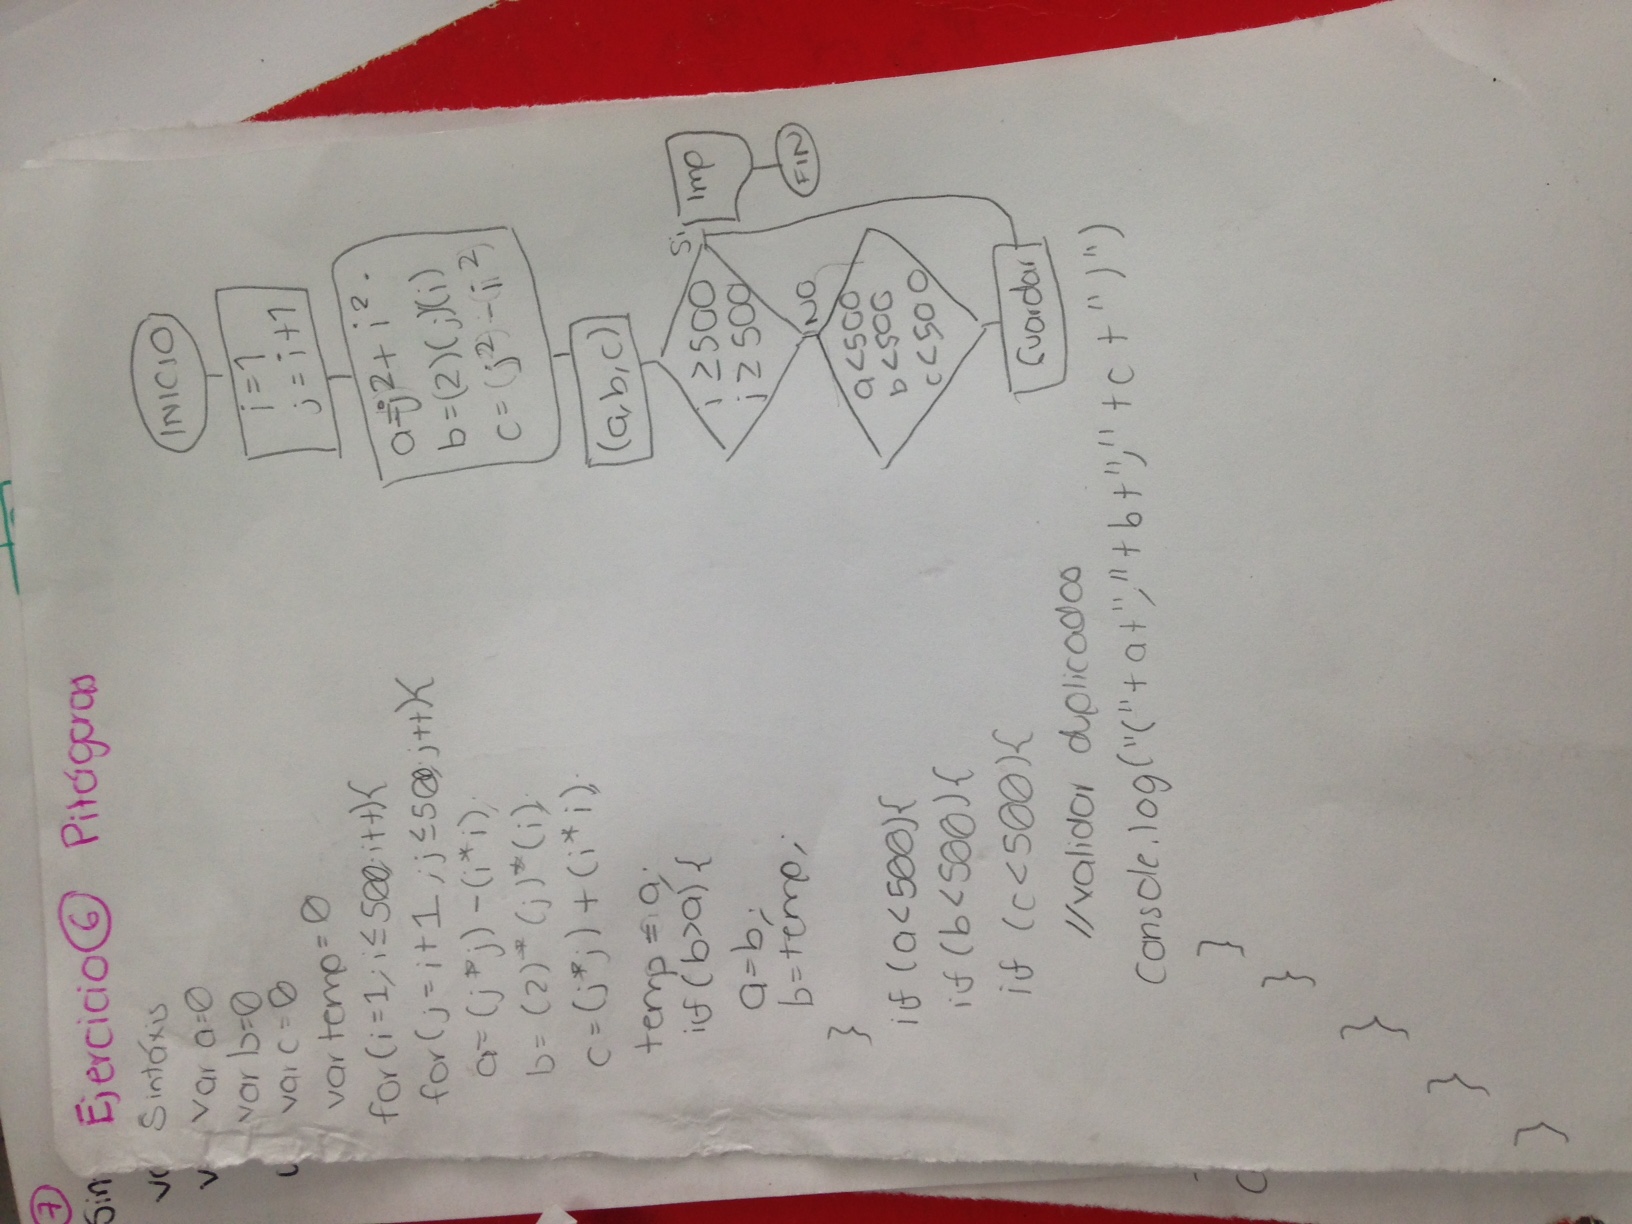 7
Sin
Ejercicio 6 Pitágoras
Sintáxis
var a=0
var b=0
var c=0
var temp=0
for(i=1;i≤500;i++){
for(j=i+1;j≤500;j++){
a=(j*j)-(i*i);
b=(2)*(j)*(i);
c=(j*j)+(i*i);
temp=a;
if(b>a){
a=b;
b=temp;
}
if(a<500){
if(b<500){
if(c<500){
//validar duplicados
Console.log("("+a+","+b+","+c+")")
}
}
}
}
}
INICIO
i=1
j=i+1
a=j2+i2.
b=(2)(j)(i)
c=(j2)-(i2)
(a,b,c)
i≥500
j≥500
Si
Imp
FIN
NO
a<500
b<500
c<500
Guardar